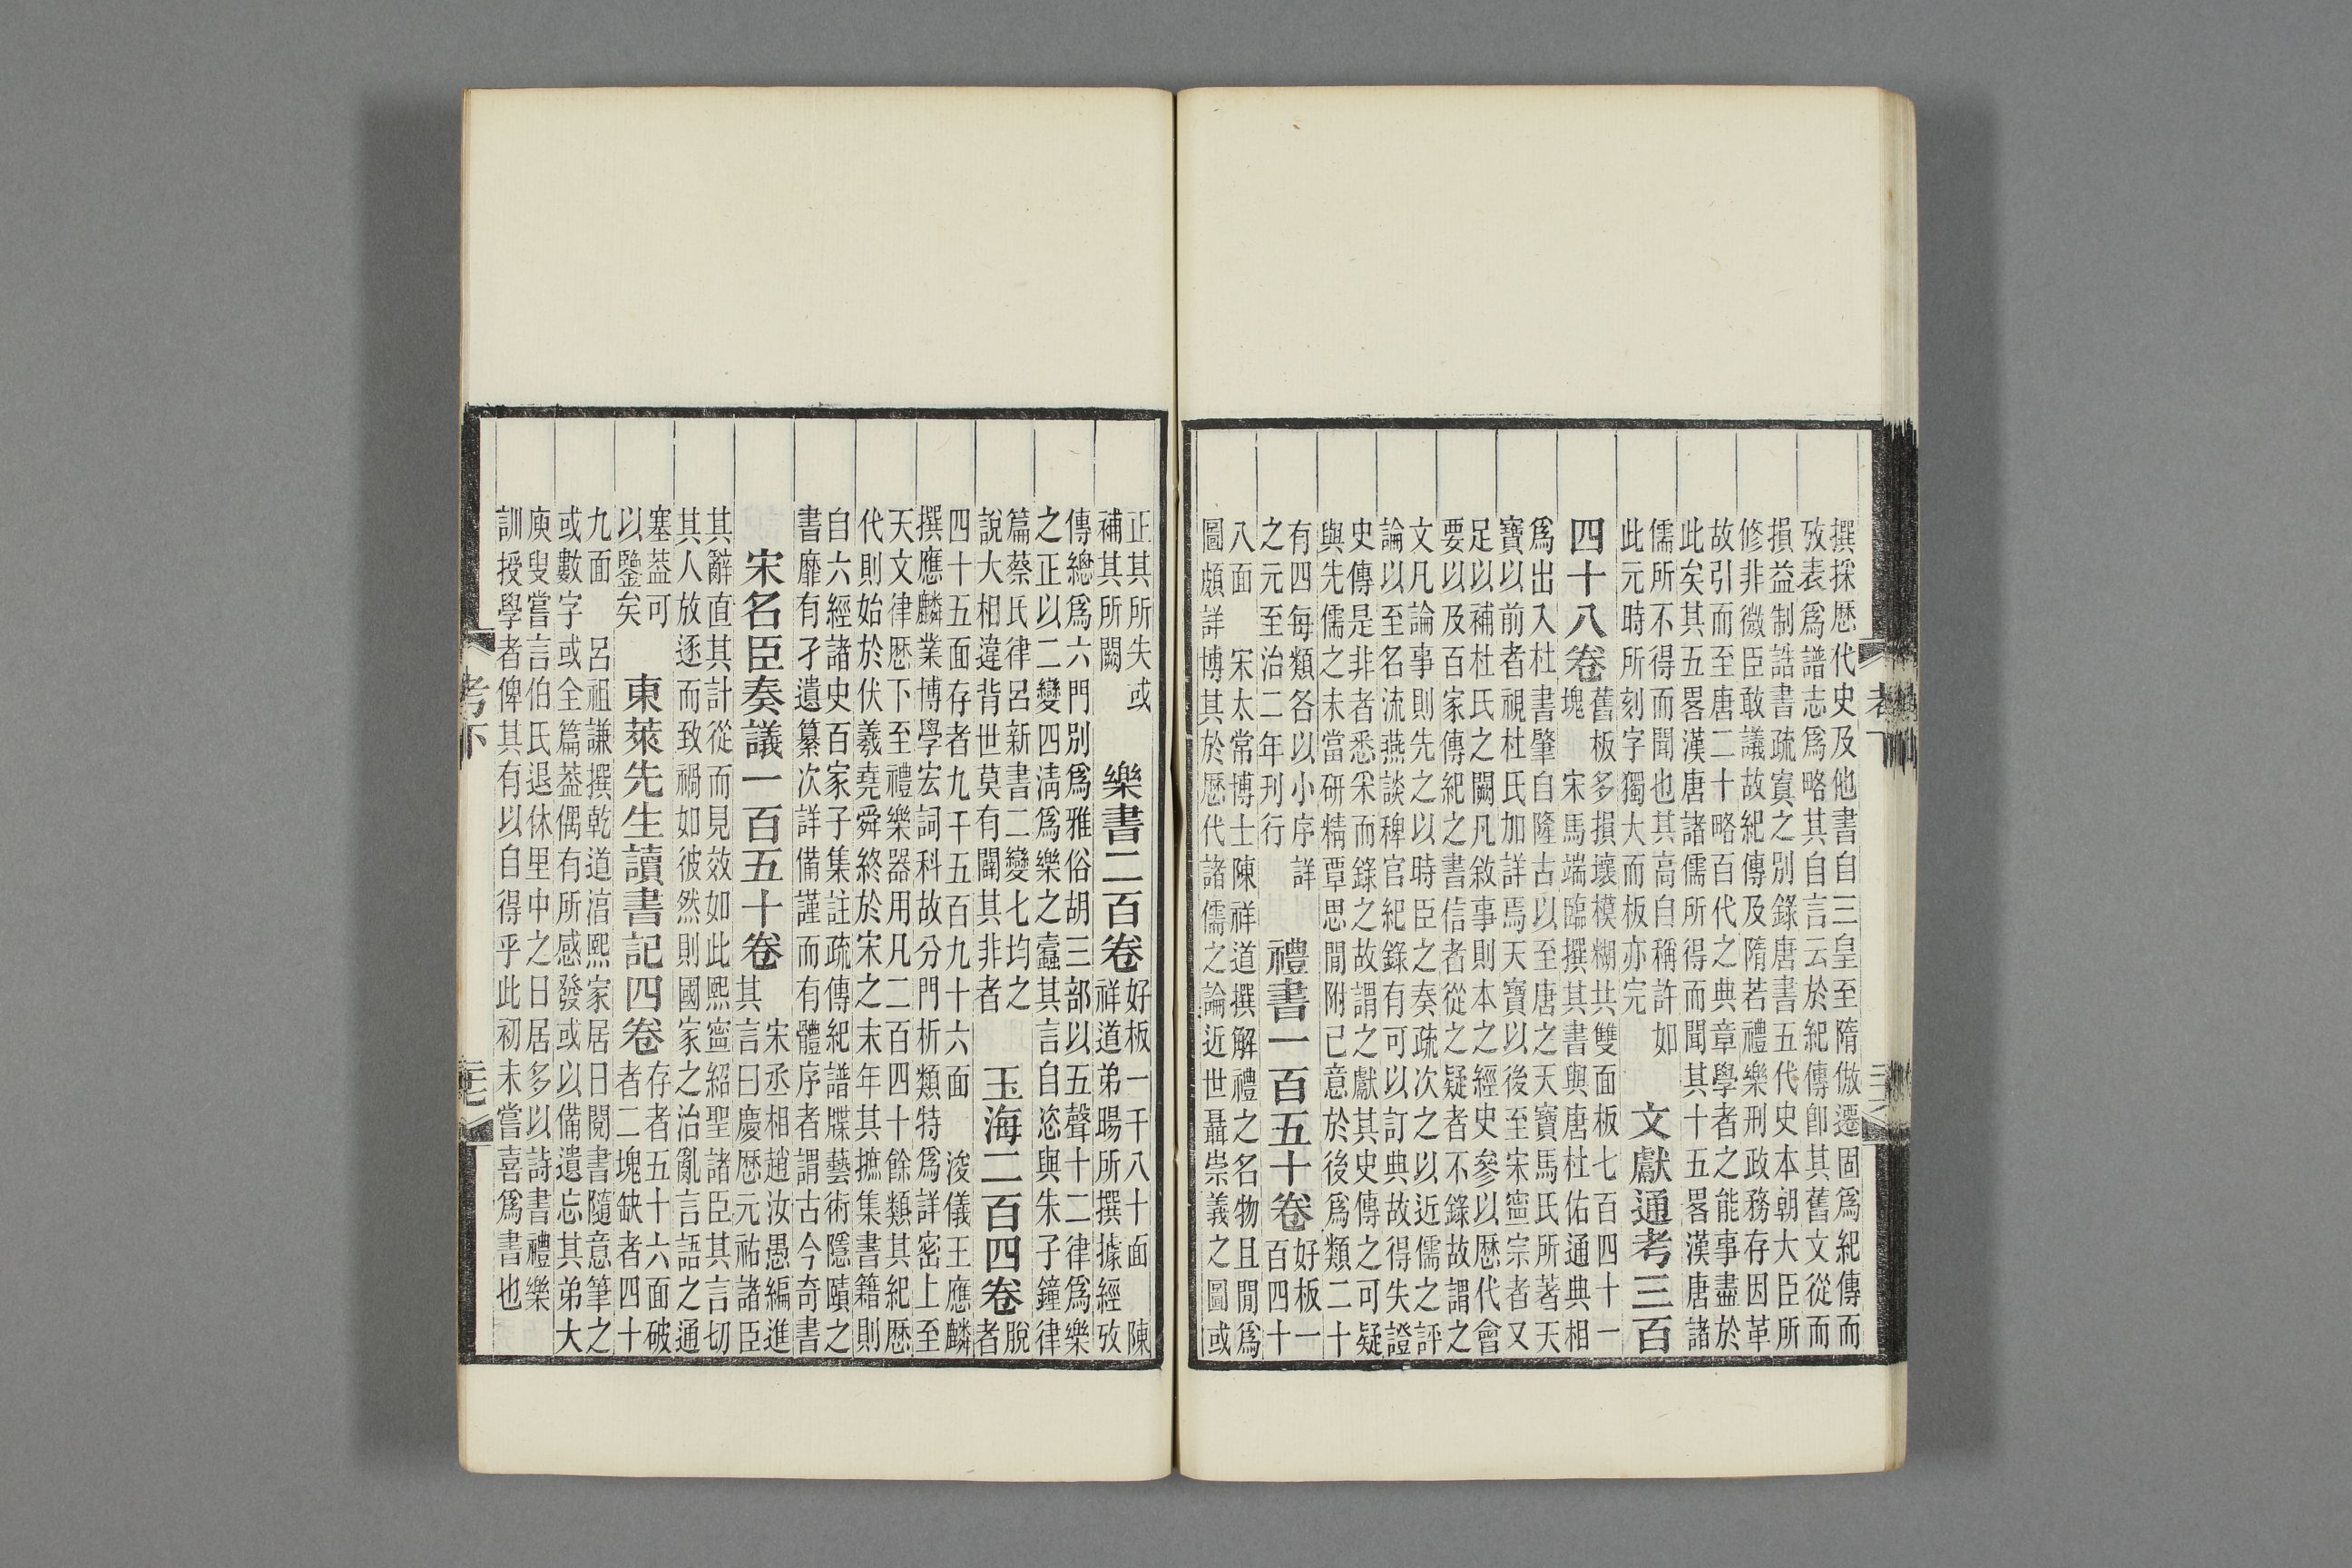 撰採歷代史及他書自三皇至隋倣遷固爲紀傳而
攷表爲譜志爲略其自言云於紀傳卽其舊文從而
損益制誥書疏寘之別錄唐書五代史本朝大臣所
修非微臣敢議故紀傳及隋若禮樂刑政務存因革
故引而至唐二十略百代之典章學者之能事盡於
此矣其五畧漢唐諸儒所得而聞其十五畧漢唐諸
儒所不得而聞也其高自稱許如
此元時所刻字獨大而板亦完
文獻通考三百
四十八卷
舊板多損壞模糊共雙面板七百四十一
塊 宋馬端臨撰其書與唐杜佑通典相
爲出入杜書肇自隆古以至唐之天寶馬氏所著天
寶以前者視杜氏加詳焉天寶以後至宋寧宗者又
足以補杜氏之闕凡敘事則本之經史參以歷代會
要以及百家傳紀之書信者從之疑者不錄故謂之
文凡論事則先之以時臣之奏疏次之以近儒之評
論以至名流燕談稗官紀錄有可以訂典故得失證
史傳是非者悉采而錄之故謂之獻其史傳之可疑
與先儒之未當硏精覃思閒附己意於後爲類二十
有四每類各以小序詳
之元至治二年刊行
禮書一百五十卷
好板一
百四十
八面 宋太常博士陳祥道撰解禮之名物且閒爲
圖頗詳博其於歷代諸儒之論近世聶崇義之圖或
考下
正其所失或
補其所闕
樂書二百卷
好板一千八十面 陳
祥道弟暘所撰據經攷
傳總爲六門別爲雅俗胡三部以五聲十二律爲樂
之正以二變四淸爲樂之蠹其言自恣與朱子鐘律
篇蔡氏律呂新書二變七均之
說大相違背世莫有闢其非者
玉海二百四卷
脫
者
四十五面存者九千五百九十六面 浚儀王應麟
撰應麟業博學宏詞科故分門析類特爲詳密上至
天文律歷下至禮樂器用凡二百四十餘類其紀歷
代則始於伏羲堯舜終於宋之末年其摭集書籍則
自六經諸史百家子集註疏傳紀譜牒藝術隱賾之
書靡有孑遺纂次詳備謹而有體序者謂古今奇書
宋名臣奏議一百五十卷
宋丞相趙汝愚編進
其言曰慶歷元祐諸臣
其辭直其計從而見效如此熙寧紹聖諸臣其言切
其人放逐而致禍如彼然則國家之治亂言語之通
塞葢可
以鑒矣
東萊先生讀書記四卷
存者五十六面破
者二塊缺者四十
九面 呂祖謙撰乾道淳熙家居日閱書隨意筆之
或數字或全篇葢偶有所感發或以備遺忘其弟大
庾叟嘗言伯氏退休里中之日居多以詩書禮樂
訓授學者俾其有以自得乎此初未嘗喜爲書也
考下